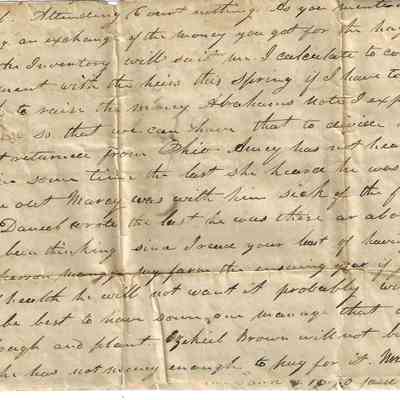 Attending to want nothing. As you ment
an exchange of the money you got for the ho
the Inventory will suit me. I calculate to co
ment with the heirs this spring if I have to
to raise the money Abahams note I exp
so that we can have that to divide
returned from Ohio has not hea
some time the last she heard he was
out Marcy was with him sick of the f
Daniel wrote the last he was there
been thinking since I recd your last of havin
person manage my farm the ensuing year if
health he will not want it probably
be best to have some one manage that
ough and plant Ezekiel Brown will not b
he has not money enough to pay for it. Mr